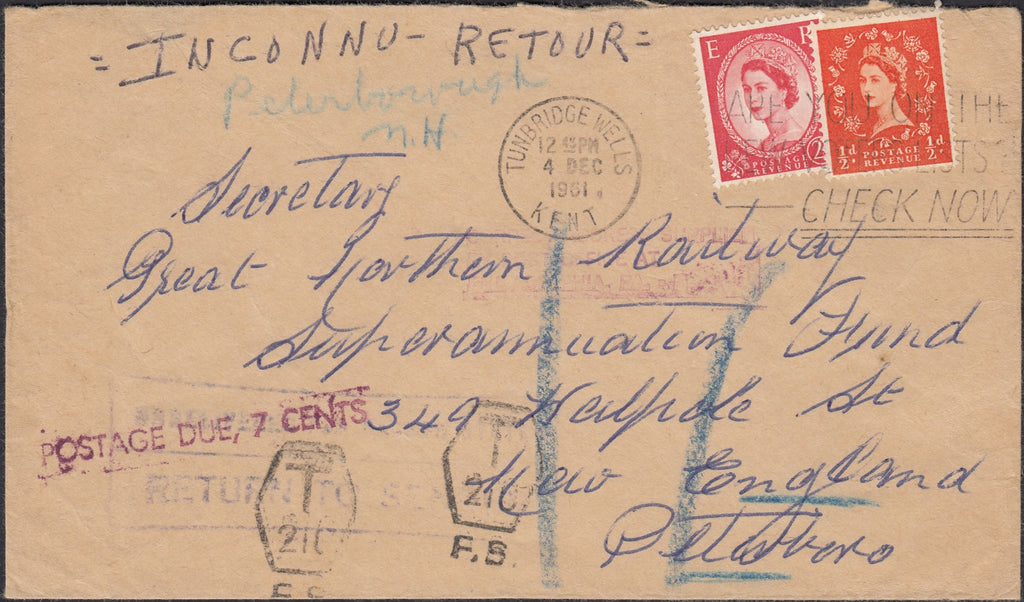 = INCONNU - RETOUR =
Peterborough
N.H.
E R
POSTAGE
REVENUE
2
½d. POSTAGE ½d.
REVENUE
TUNBRIDGE WELLS
12 45 PM
4 DEC
1961
KENT
ARE YOU ON THE
LISTS?
CHECK NOW
Secretary
Great Northern Railway
Superannuation Fund
349 Walpole St
New England
Peterboro
POSTAGE DUE, 7 CENTS
RETURN TO
T
F.S.
T
F.S.